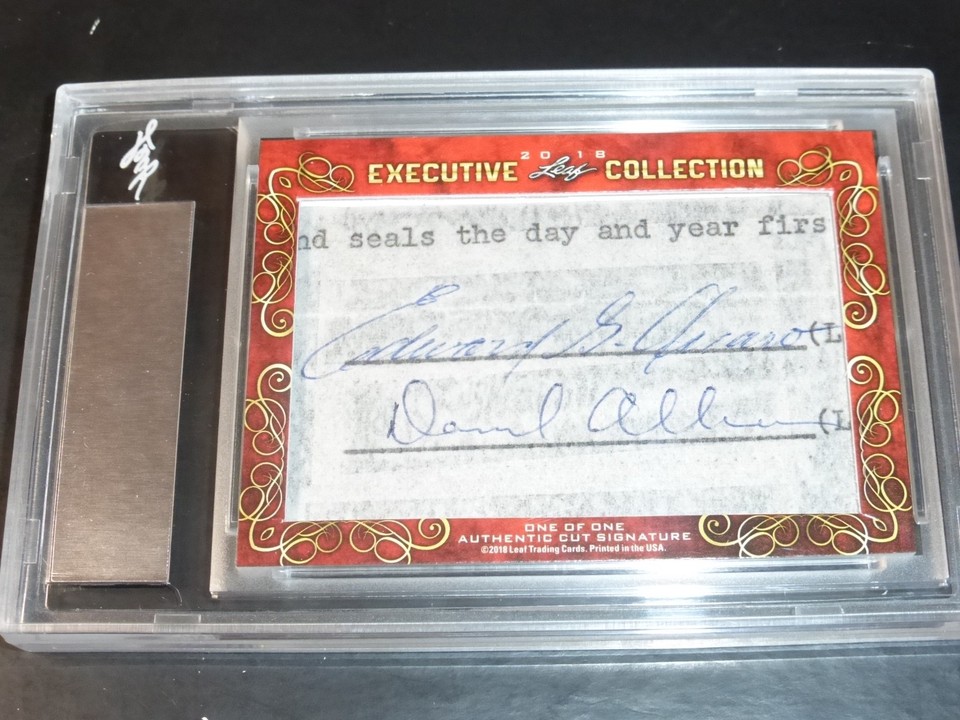 2018
EXECUTIVE Leaf COLLECTION
nd seals the day and year firs
Edward G. (L
Daniel (L
ONE OF ONE
AUTHENTIC CUT SIGNATURE
©2018 Leaf Trading Cards. Printed in the USA.